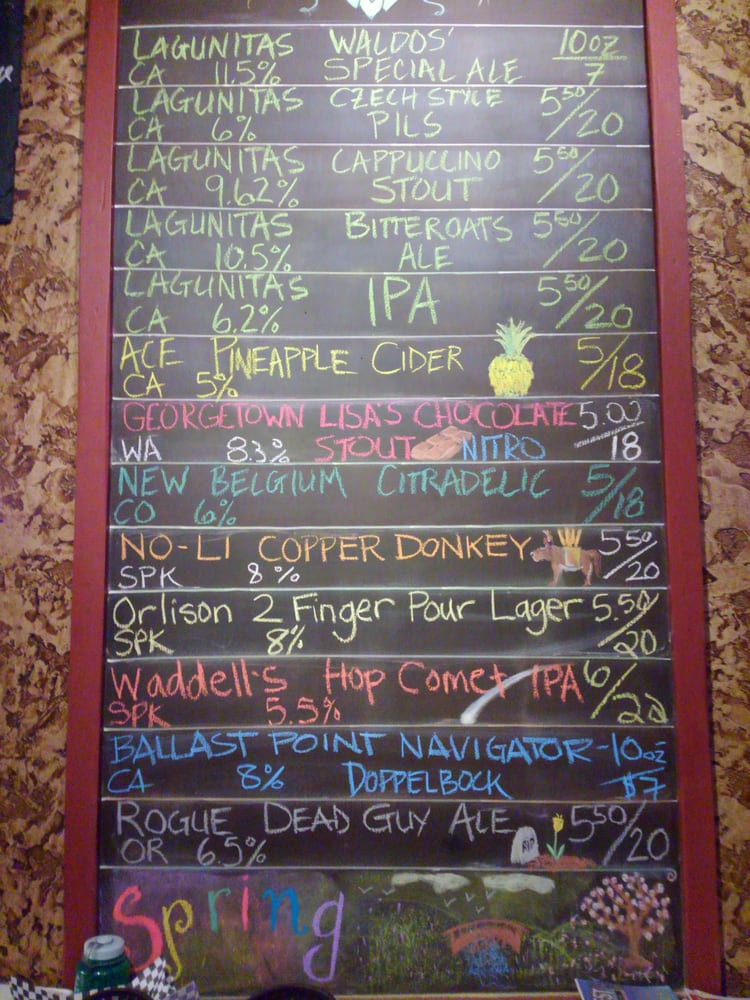 LAGUNITAS WALDOS' 10oz
CA 11.5% SPECIAL ALE 7
LAGUNITAS CZECH STYLE 5⁵⁰/20
CA 6% PILS
LAGUNITAS CAPPUCCINO 5⁵⁰/20
CA 9.62% STOUT
LAGUNITAS BITTEROATS 5⁵⁰/20
CA 10.5% ALE
LAGUNITAS IPA 5⁵⁰/20
CA 6.2%
ACE PINEAPPLE CIDER 5/18
CA 5%
GEORGETOWN LISA'S CHOCOLATE 5.00
WA 8.3% STOUT NITRO 18
NEW BELGIUM CITRADELIC 5/18
CO 6%
NO-LI COPPER DONKEY 5⁵⁰/20
SPK 8%
Orlison 2 Finger Pour Lager 5.50/20
SPK 8%
Waddell's Hop Comet IPA 6/22
SPK 5.5%
BALLAST POINT NAVIGATOR-10oz
CA 8% DOPPELBOCK $7
ROGUE DEAD GUY ALE 5⁵⁰/20
OR 6.5% RIP
Spring